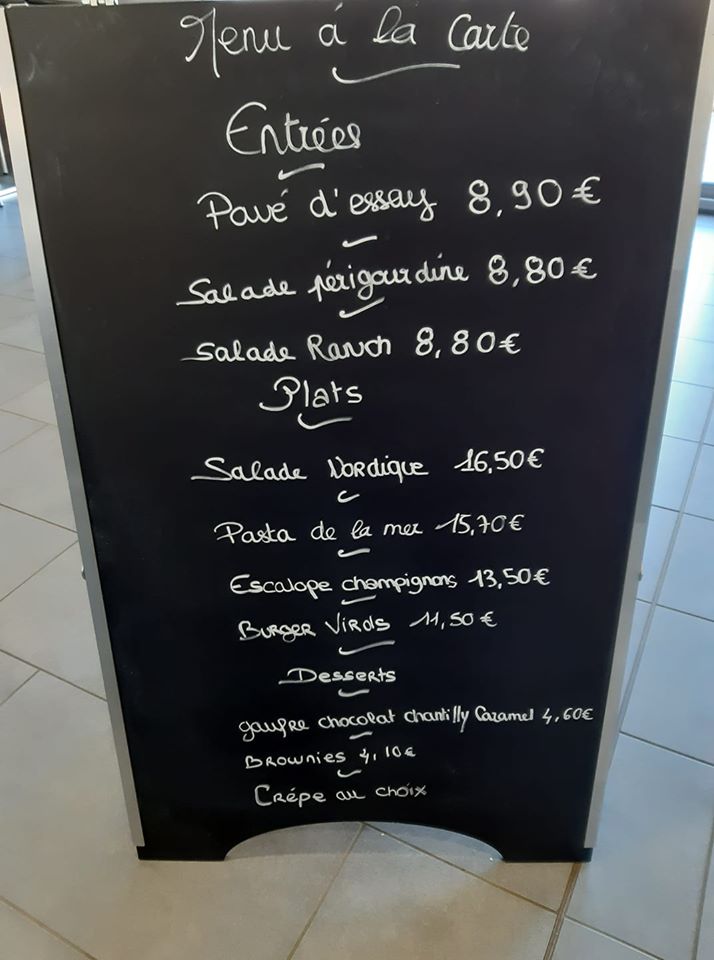 Menu á la Carte
Entrées
Pavé d'essay 8,90€
Salade périgourdine 8,80€
Salade Ranch 8,80€
Plats
Salade Nordique 16,50€
Pasta de la mer 15,70€
Escalope champignons 13,50€
Burger Virois 11,50€
Desserts
gaufre chocolat chantilly Caramel 4,60€
Brownies 4,10€
Crépe au choix